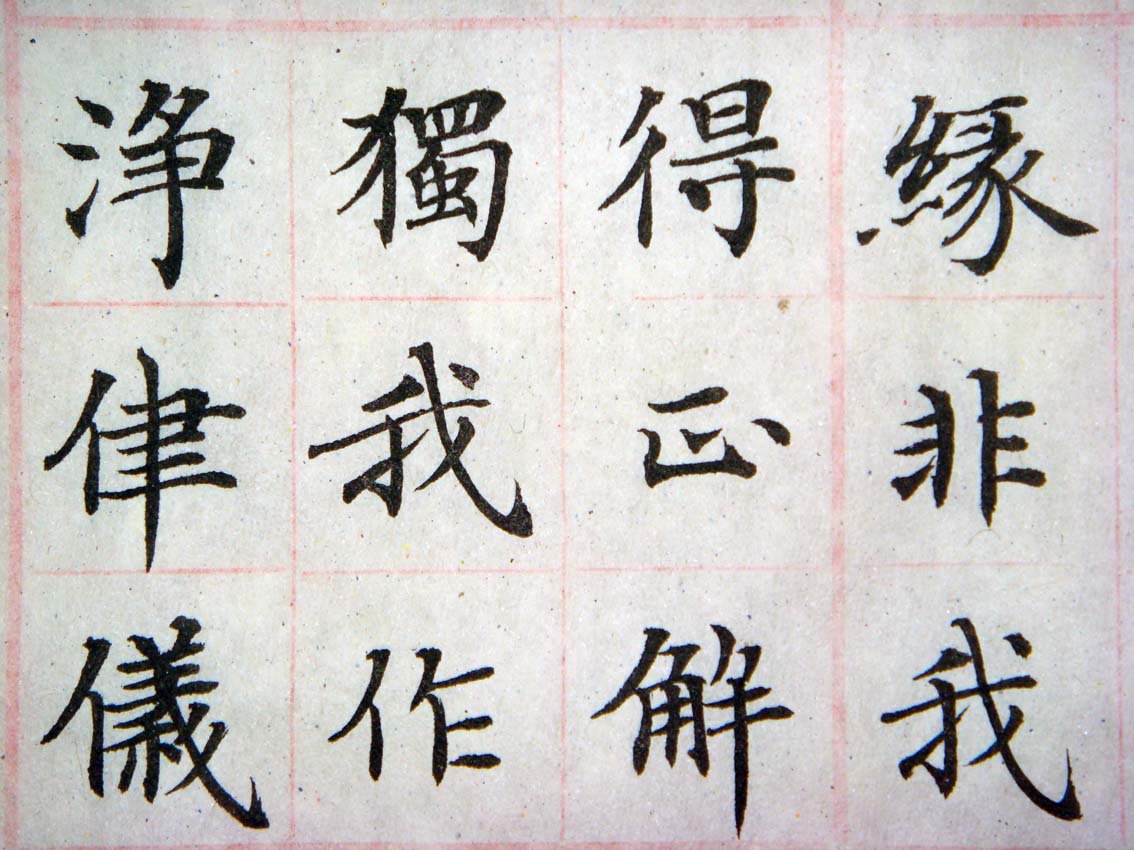 緣非我
得正解
獨我作
浄律儀